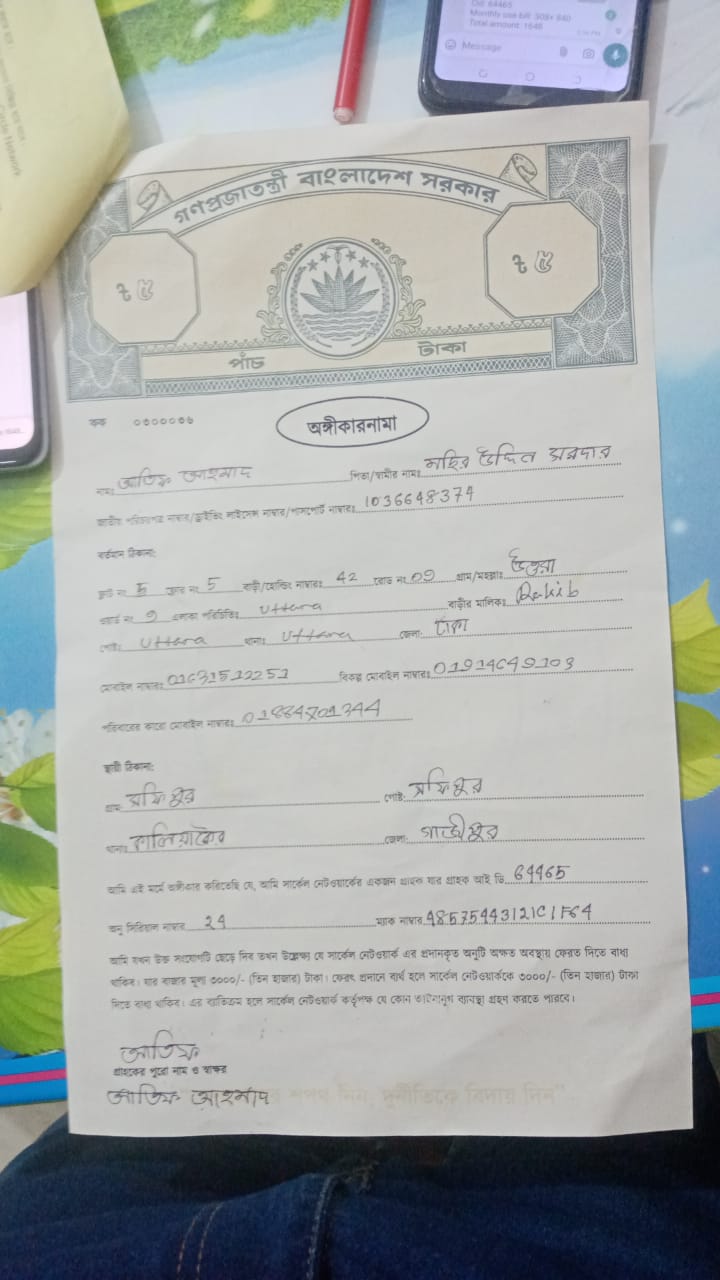 Cid: 64465
Monthly use bill: 308+ 840
Total amount: 1648
Message
Circle Network
গণপ্রজাতন্ত্রী বাংলাদেশ সরকার
৳ ৫
৳ ৫
পাঁচ টাকা
কক ০০০০০৩৬
অঙ্গীকারনামা
নাম: আতিফ আহমাদ পিতা/স্বামীর নাম: মহির উদ্দিন সরদার
জাতীয় পরিচয়পত্র নাম্বার/ড্রাইভিং লাইসেন্স নাম্বার/পাসপোর্ট নাম্বার: 1036648374
বর্তমান ঠিকানা:
ফ্লাট নং 5 ফ্লোর নং 5 বাড়ী/হোল্ডিং নাম্বারঃ 42 রোড নং 09 গ্রাম/মহল্লাঃ উত্তরা
ওয়ার্ড নং 9 এলাকা পরিচিতিঃ Uttara বাড়ীর মালিকঃ Rakib
পোষ্ট: Uttara থানাঃ Uttara জেলা: ঢাকা
মোবাইল নাম্বারঃ 01631512251 বিকল্প মোবাইল নাম্বারঃ 01914649103
পরিবারের কারো মোবাইল নাম্বারঃ
স্থায়ী ঠিকানা:
গ্রাম: সফিপুর পোষ্ট: সফিপুর
থানাঃ কালিয়াকৈর জেলা: গাজীপুর
আমি এই মর্মে অঙ্গীকার করিতেছি যে, আমি সার্কেল নেটওয়ার্কের একজন গ্রাহক যার গ্রাহক আই ডি 64465
অনু সিরিয়াল নাম্বার 24 ম্যাক নাম্বার 48575443121C1F64
আমি যখন উক্ত সংযোগটি ছেড়ে দিব তখন উল্লেক্ষ্য যে সার্কেল নেটওয়ার্ক এর প্রদানকৃত অনুটি অক্ষত অবস্থায় ফেরত দিতে বাধ্য
থাকিব। যার বাজার মূল্য ৩০০০/- (তিন হাজার) টাকা। ফেরৎ প্রদানে ব্যর্থ হলে সার্কেল নেটওয়ার্ককে ৩০০০/- (তিন হাজার) টাকা
দিতে বাধ্য থাকিব। এর ব্যতিক্রম হলে সার্কেল নেটওয়ার্ক কর্তৃপক্ষ যে কোন আইনানুগ ব্যবস্থা গ্রহণ করতে পারবে।
আতিফ
গ্রাহকের পুরো নাম ও স্বাক্ষর
আতিফ আহমাদ
শপথ নিন, দুর্নীতিকে বিদায় দিন"